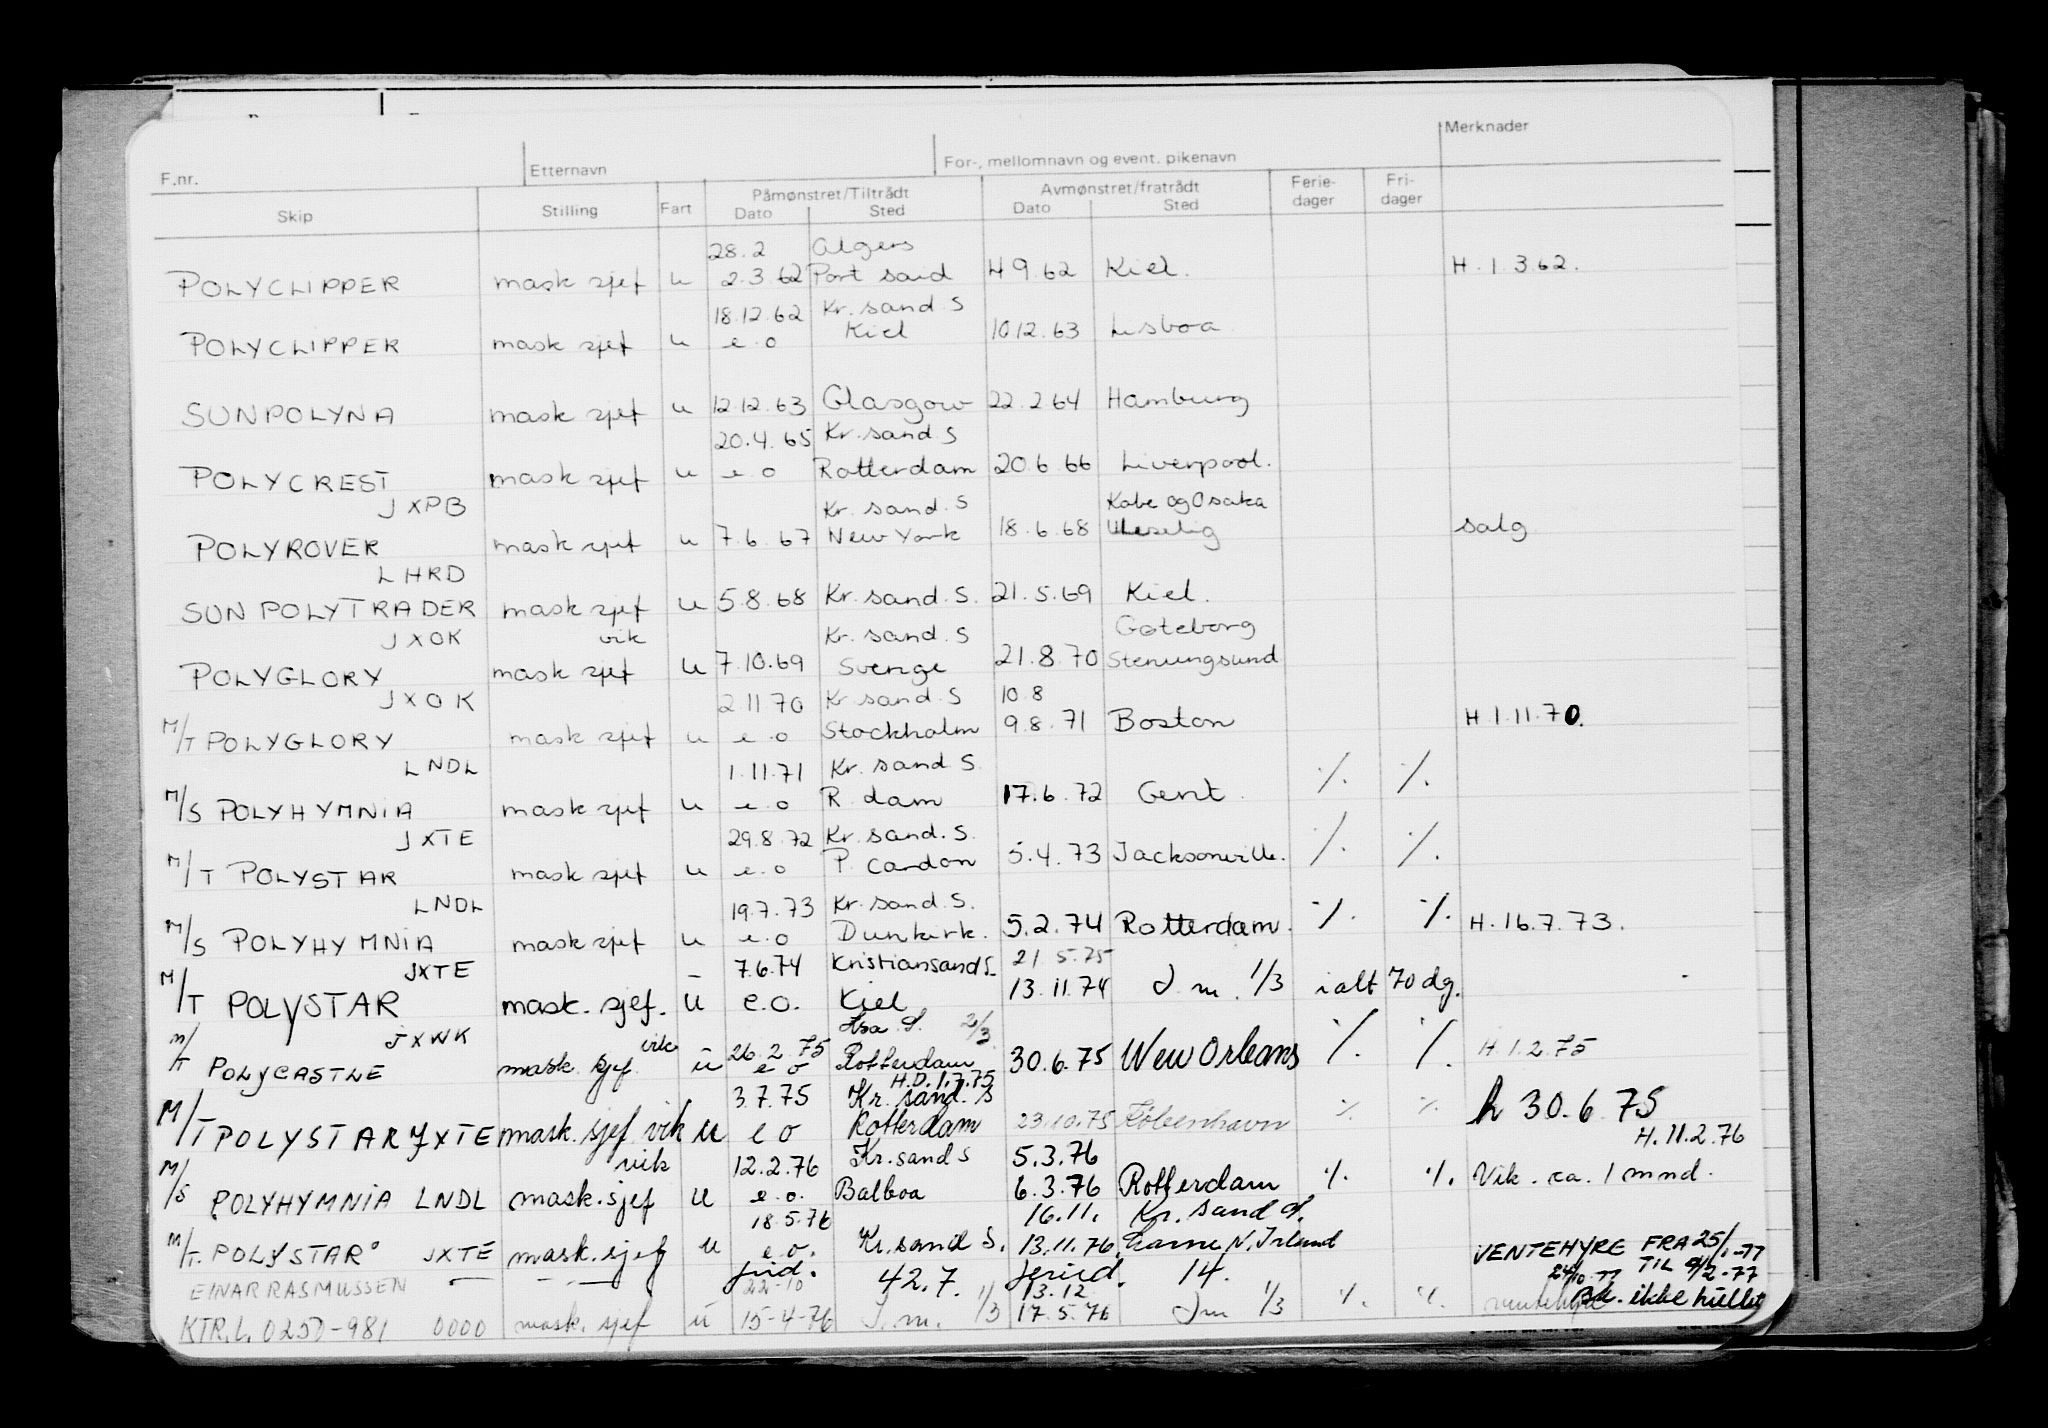 Merknader
F.nr. Etternavn For-, mellomnavn og event. pikenavn
Skip Stilling Fart Påmønstret/Tiltrådt Dato Sted Avmønstret/fratrådt Dato Sted Ferie-dager Fri-dager
28.2 Algers
POLYCLIPPER mask sjef u 2.3.62 Port said 4 9.62 Kiel. H.1.3.62.
18.12.62 Kr.sand.S
POLYCLIPPER mask sjef u e.o Kiel 10.12.63 Lisboa
SUNPOLYNA mask sjef u 12.12.63 Glasgow 22.2.64 Hamburg
20.4.65 Kr.sand.S
POLYCREST mask sjef u e.o Rotterdam 20.6.66 Liverpool.
JXPB Kr.sand.S Kobe og Osaka
POLYROVER mask sjef u 7.6.67 New York 18.6.68 Uleselig salg
LHRD
SUN POLYTRADER mask sjef u 5.8.68 Kr.sand.S. 21.5.69 Kiel.
JXOK vik Kr.sand.S Göteborg
POLYGLORY mask sjef u 7.10.69 Sverige 21.8.70 Stenungsund
JXOK 2.11.70 Kr sand.S 10.8
M/T POLYGLORY mask sjef u e.o Stockholm 9.8.71 Boston H.1.11.70.
LNDL 1.11.71 Kr.sand S.
M/S POLYHYMNIA mask sjef u e.o R.dam 17.6.72 Gent. ·/. ·/.
JXTE 29.8.72 Kr.sand.S.
M/T POLYSTAR mask sjef u e.o P. Cardon 5.4.73 Jacksonville. ·/. ·/.
LNDL 19.7.73 Kr.sand.S.
M/S POLYHYMNIA mask sjef u e.o Dunkirk. 5.2.74 Rotterdam. ·/. ·/. H.16.7.73.
JXTE - 7.6.74 Kristiansand S. 21 5.75
M/T POLYSTAR mask.sjef. u e.o. Kiel 13.11.74 J.m. 1/3 i alt 70 dg.
JXWK vik 26.2.75 2/3
M/T POLYCASTLE mask.sjef. u e o Rotterdam 30.6.75 New Orleans ·/. ·/. H.1.2.75
H.D.1.7.75
3.7.75 Kr.sand.S
M/T POLYSTAR JXTE mask.sjef vik u e o Rotterdam 23.10.75 København ·/. ·/. h 30.6.75
vik 12.2.76 Kr.sand S 5.3.76 H.11.2.76
M/S POLYHYMNIA LNDL mask.sjef u e.o. Balboa 6.3.76 Rotterdam ·/. ·/. Vik. ca. 1 mnd.
18.5.76 16.11. Kr.sand S.
M/T. POLYSTAR JXTE mask.sjef u e.o. Kr.sand S. 13.11.76 Larne N.Irland VENTEHYRE FRA 25/1-77
EINAR RASMUSSEN 22-10 42.7. 13.12 14. 24/10 77 TIL 9/2-77
KTR.L.0250-981 0000 mask.sjef u 15-4-76 J.m. 1/3 17.5.76 Jm 1/3 ·/. ·/. ventehyre ikke